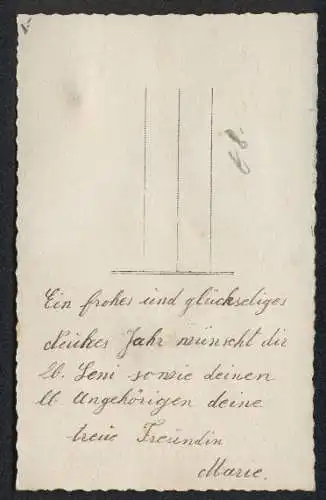 Ein frohes und glückseliges
neues Jahr wünscht dir
lb. Leni sowie deinen
lb Angehörigen deine
treue Freundin
Marie.